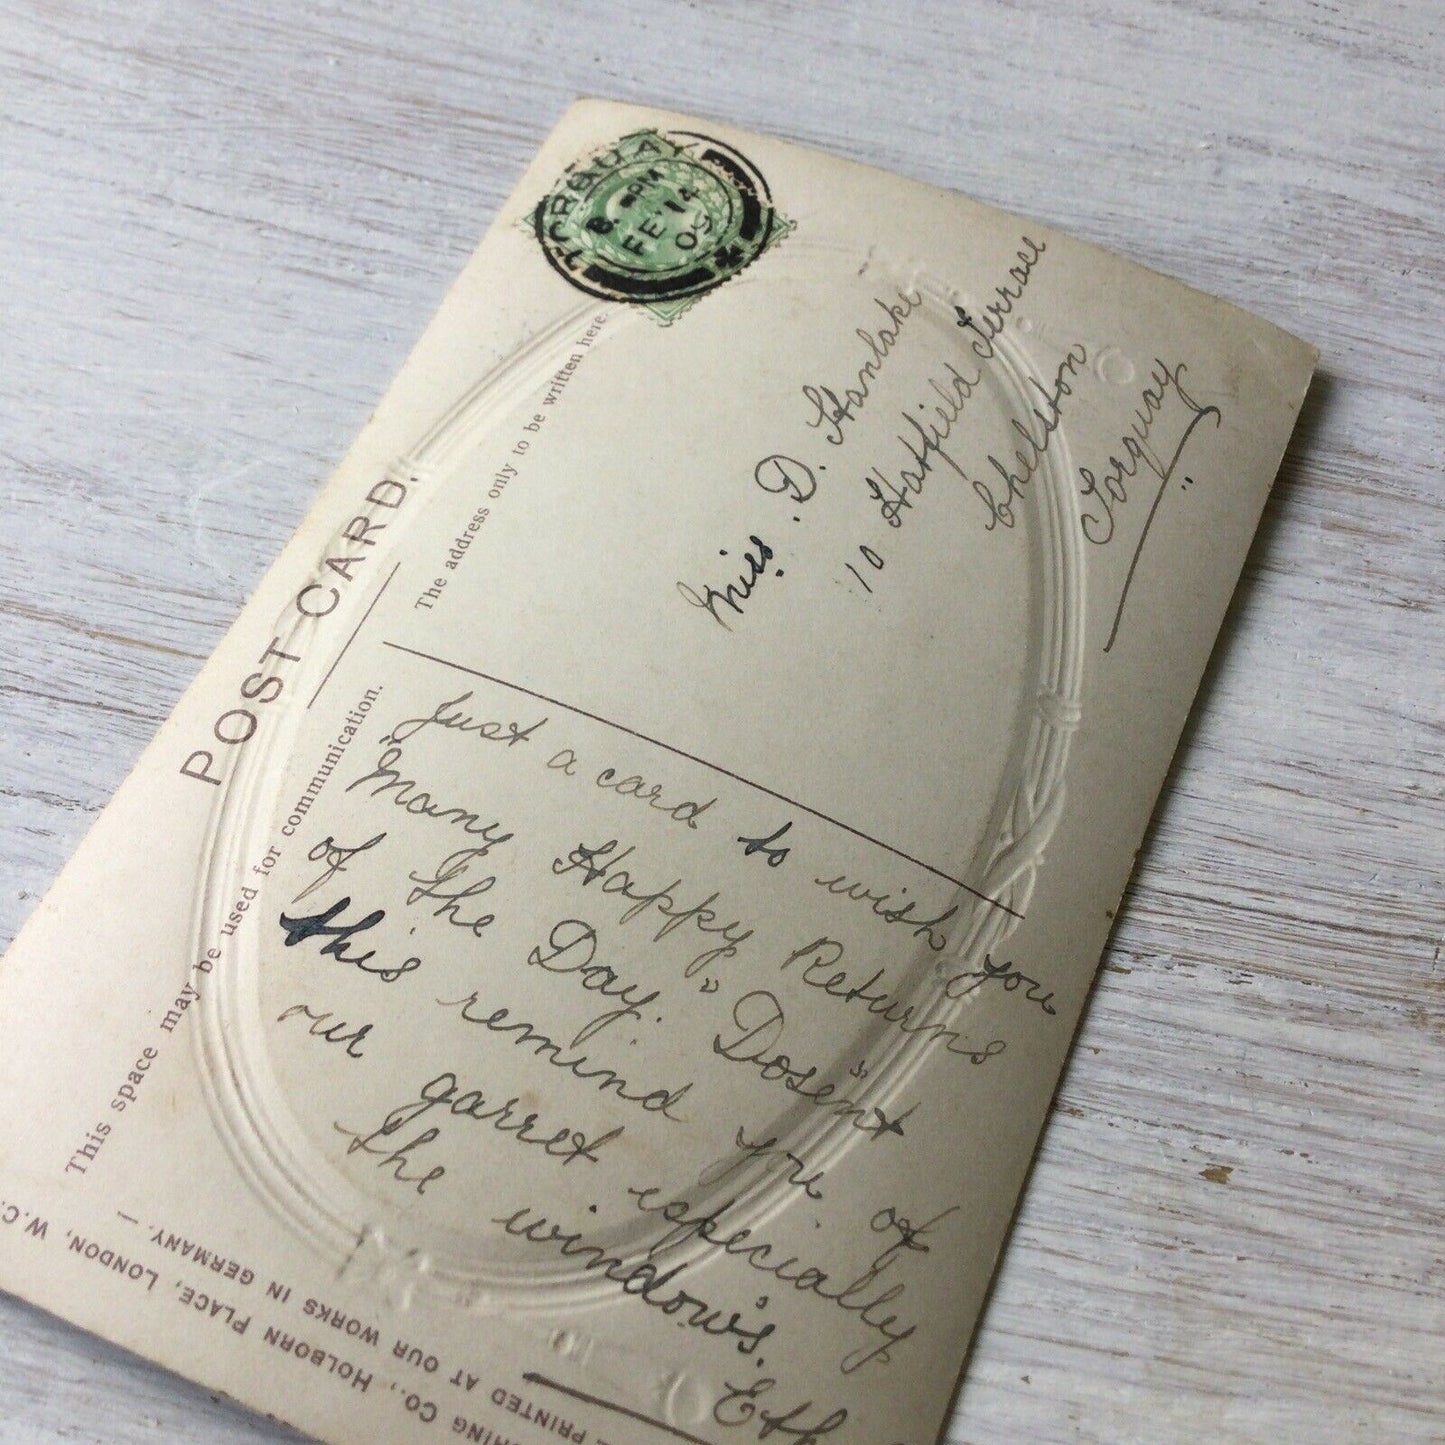 TORQUAY
8. PM
FE 14
09
POST CARD.
The address only to be written here.
This space may be used for communication.
Miss. D. Hanlake
10 Hatfield Terrace
Chelston
Torquay
Just a card to wish you
"Many Happy Returns
of the Day." Dosen"t
this remind you of
our garret especially
the window"s.
Eth
CO., HOLBORN PLACE, LONDON, W.C.
PRINTED AT OUR WORKS IN GERMANY. —